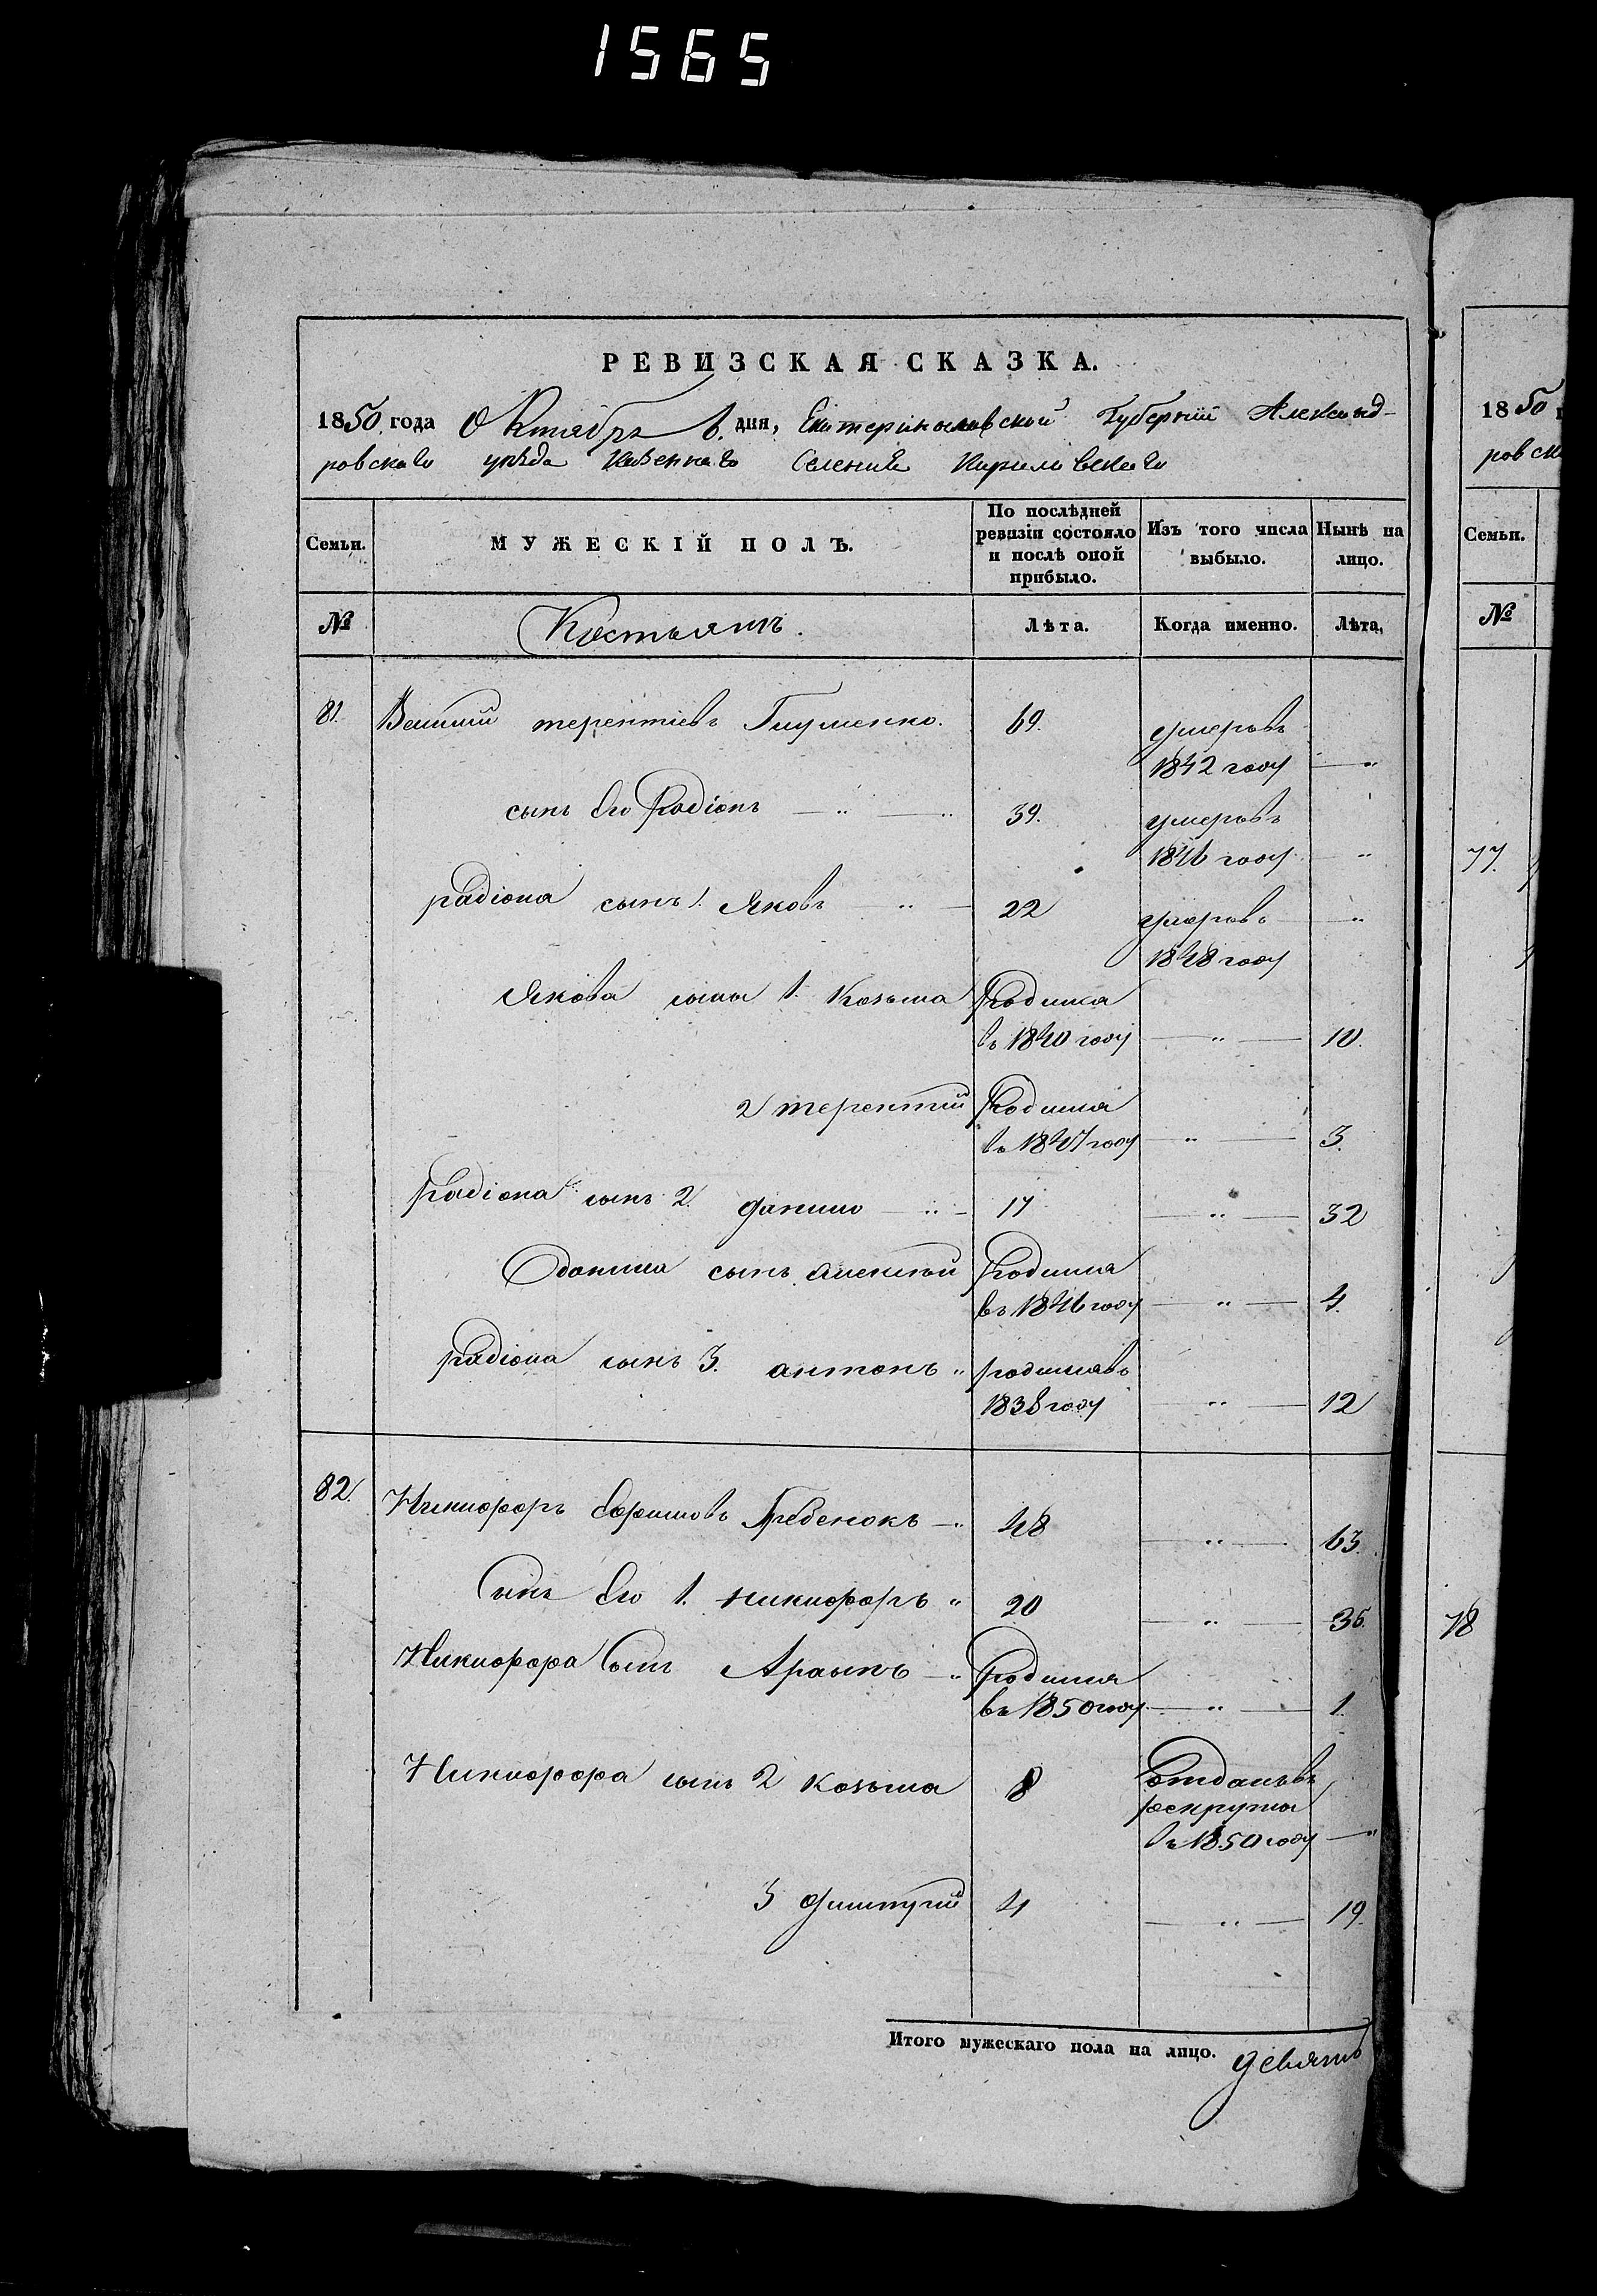 1565
РЕВИЗСКАЯ СКАЗКА.
1850 года Октября 6. дня, Екатеринославской Губерніи Александ-
ровскаго уѣзда Казеннаго Селенія Кириловскаго
Семьи.
МУЖЕСКІЙ ПОЛЪ.
По послѣдней ревизіи состояло и послѣ оной прибыло.
Изъ того числа выбыло.
Нынѣ на лицо.
№
Лѣта.
Когда именно.
Лѣта.
81. терентіевъ 69. умеръ въ
1842 году
сынъ его Родіонъ 39. умеръ въ
1846 году
радіона сынъ 1. Яковъ 22 умеръ въ
1848 году
Якова сыны 1. Козьма Родился
въ 1840 году 10.
2 терентий Родился
въ 1847 году 3.
радіона сынъ 2. данило 17 32
данила сынъ алексѣй Родился
въ 1846 году 4.
радіона сынъ 3. антонъ родился въ
1838 году 12
82. Никифоръ Ефимовъ Гребенокъ 48 63.
Сынъ его 1. никифоръ 20 35.
Никифора Сынъ родился
въ 1850 году 1.
Никифора сынъ 2 козьма 8 Отданъ въ
рекруты
въ 1850 году
3 дмитрій 4 19.
Итого мужескаго пола на лицо. девять
1850
ровск
Семьи.
№
77.
78